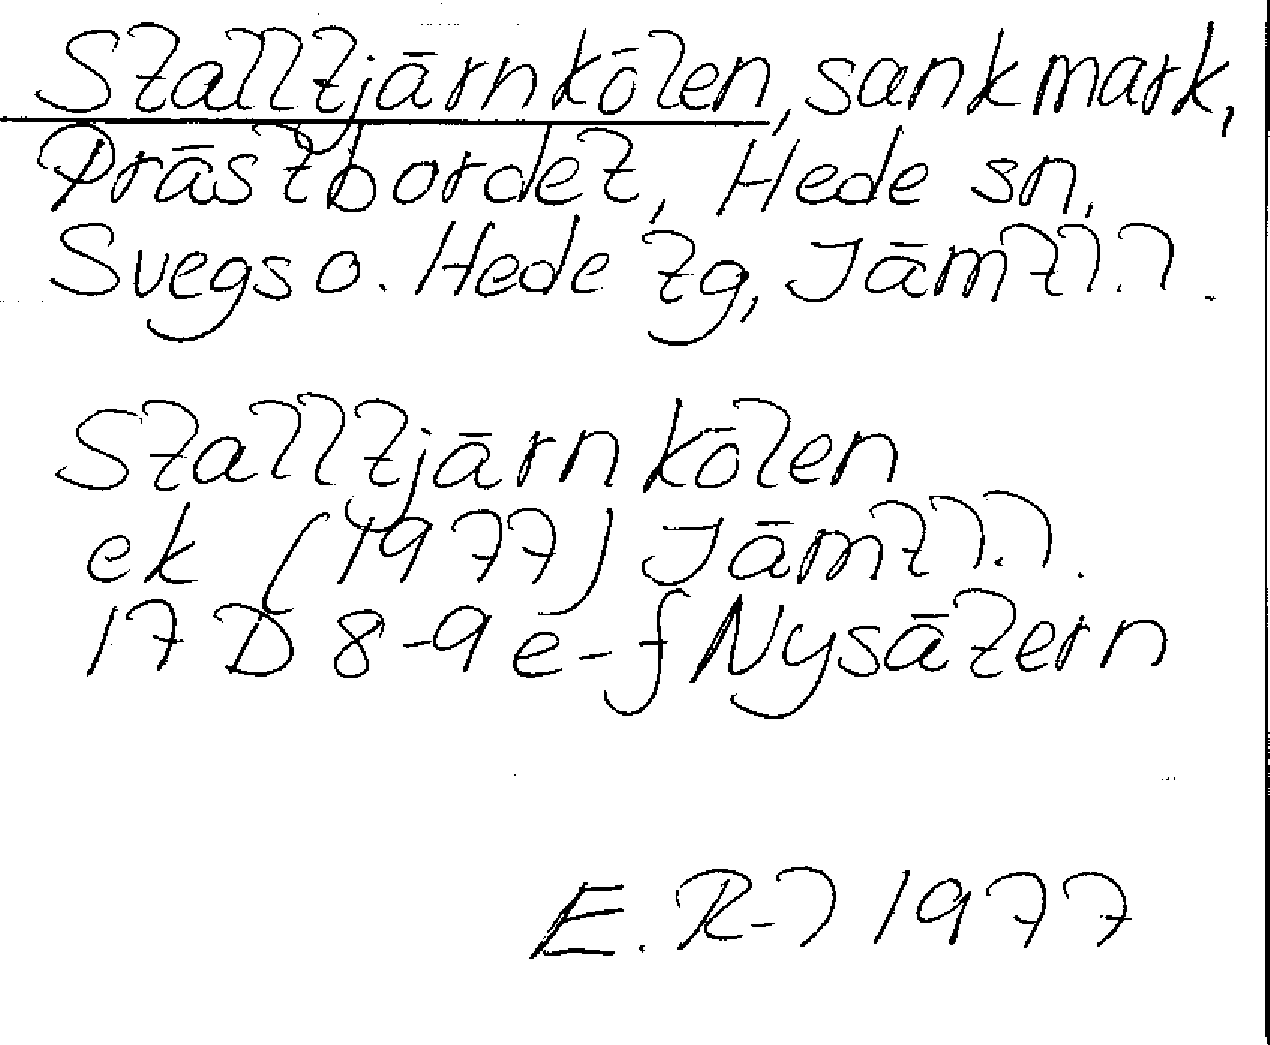 Stalltjärnkölen, sankmark,
Prästbordet, Hede sn,
Svegs o. Hede tg, Jämtl.l.
Stalltjärnkölen
ek (1977) Jämtl.l.
17 D 8-9 e-f Nysätern
E. R-l 1977